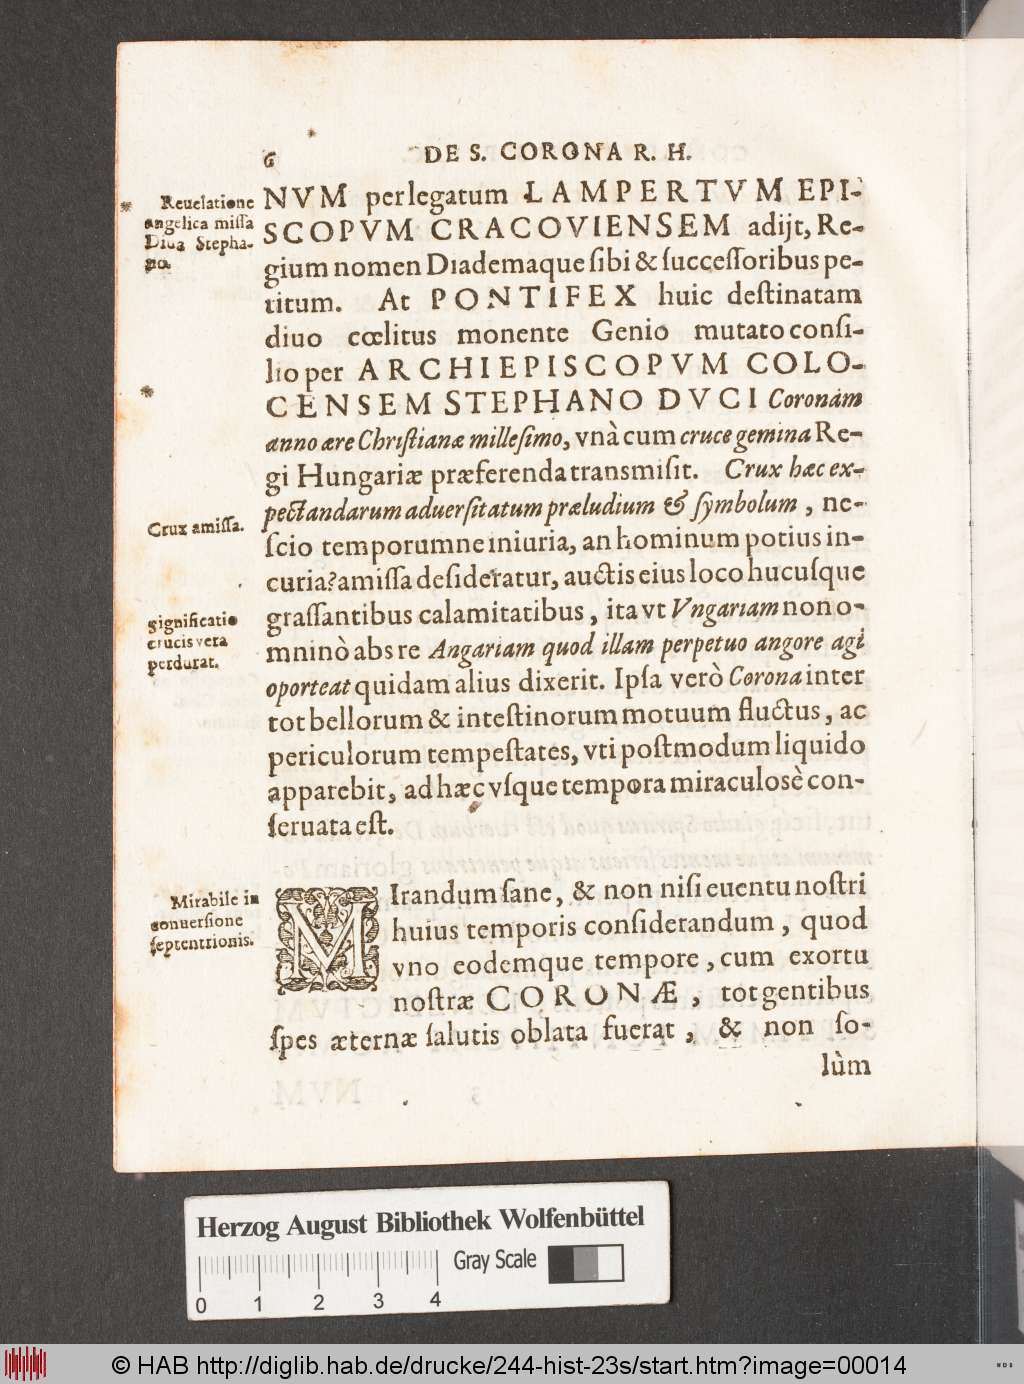 6 DE S. CORONA R. H.
* Reuelatione
angelica missa
Diua Stepha-
no.
NVM perlegatum LAMPERTVM EPI-
SCOPVM CRACOVIENSEM adijt, Re-
gium nomen Diademaque sibi & successoribus pe-
titum. At PONTIFEX huic destinatam
diuo cœlitus monente Genio mutato consi-
lio per ARCHIEPISCOPVM COLO-
*
CENSEM STEPHANO DVCI Coronam
anno ære Christianæ millesimo, vnà cum cruce gemina Re-
gi Hungariæ præferenda transmisit. Crux hæc ex-
pectandarum aduersitatum præludium & symbolum, ne-
Crux amissa.
scio temporumne iniuria, an hominum potius in-
curia? amissa desideratur, auctis eius loco hucusque
grassantibus calamitatibus, ita vt Vngariam non o-
significatio
crucis vera
perdurat.
mninò abs re Angariam quod illam perpetuo angore agi
oporteat quidam alius dixerit. Ipsa verò Corona inter
tot bellorum & intestinorum motuum fluctus, ac
periculorum tempestates, vti postmodum liquido
apparebit, ad hæc vsque tempora miraculosè con-
seruata est.
Mirabile in
conuersione
septentrionis.
MIrandum sane, & non nisi euentu nostri
huius temporis considerandum, quod
vno eodemque tempore, cum exortu
nostræ CORONÆ, tot gentibus
spes æternæ salutis oblata fuerat, & non so-
lùm
Herzog August Bibliothek Wolfenbüttel
Gray Scale
0 1 2 3 4
© HAB http://diglib.hab.de/drucke/244-hist-23s/start.htm?image=00014